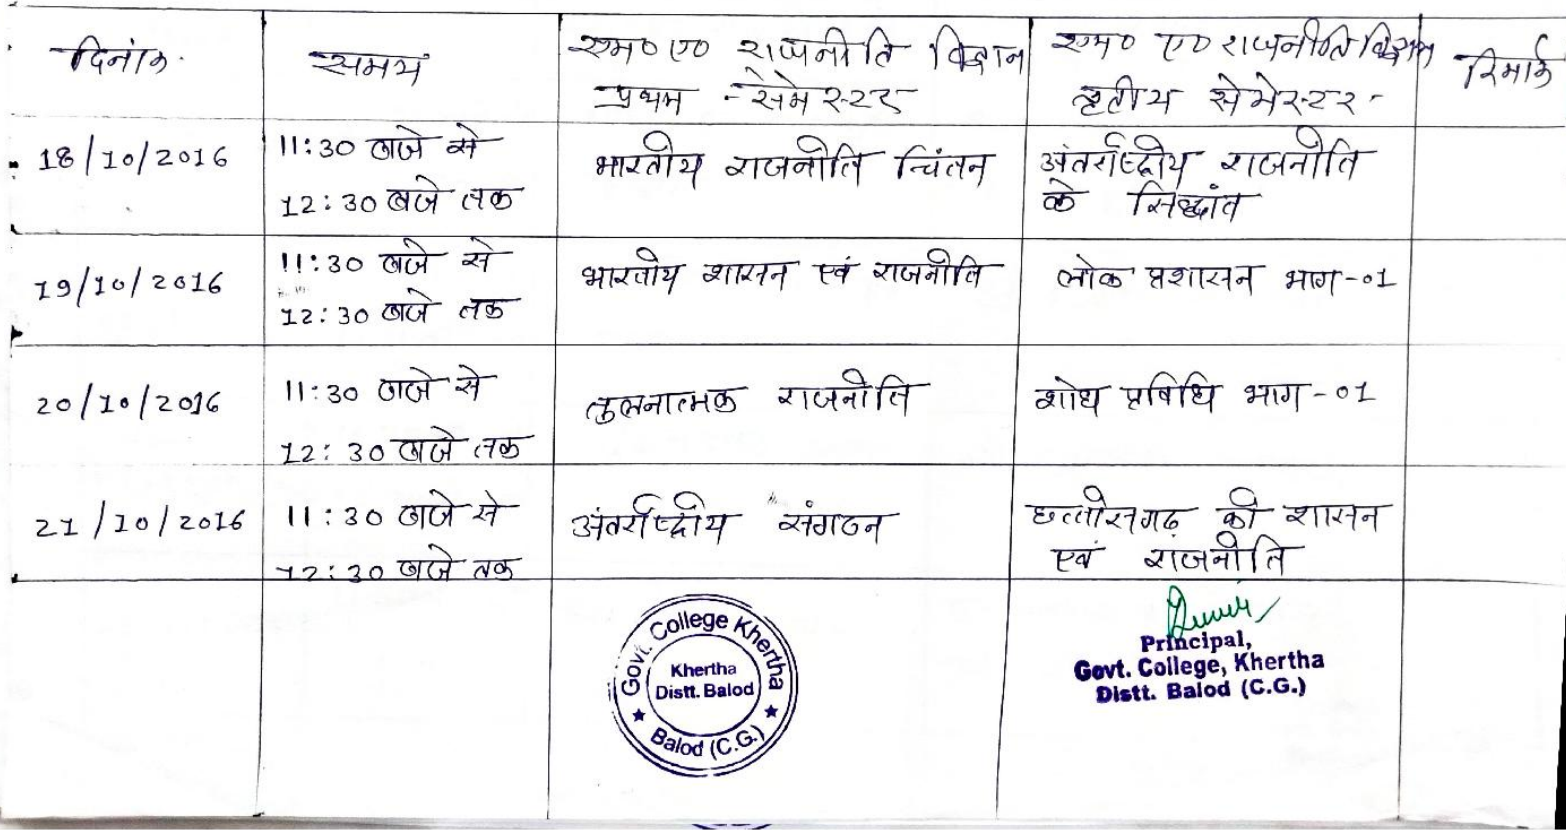 दिनांक
समय
एम० ए० राजनीति विज्ञान
प्रथम - सेमेस्टर
एम० ए० राजनीति विज्ञान
तृतीय सेमेस्टर -
रिमार्क
18/10/2016
11:30 बजे से
12:30 बजे तक
भारतीय राजनीति चिंतन
अंतर्राष्ट्रीय राजनीति
के सिद्धांत
19/10/2016
11:30 बजे से
12:30 बजे तक
भारतीय शासन एवं राजनीति
लोक प्रशासन भाग-01
20/10/2016
11:30 बजे से
12:30 बजे तक
तुलनात्मक राजनीति
शोध प्रविधि भाग-01
21/10/2016
11:30 बजे से
12:30 बजे तक
अंतर्राष्ट्रीय संगठन
छत्तीसगढ़ की शासन
एवं राजनीति
Govt. College Khertha
Khertha
Distt. Balod
★ Balod (C.G.) ★
Principal,
Govt. College, Khertha
Distt. Balod (C.G.)